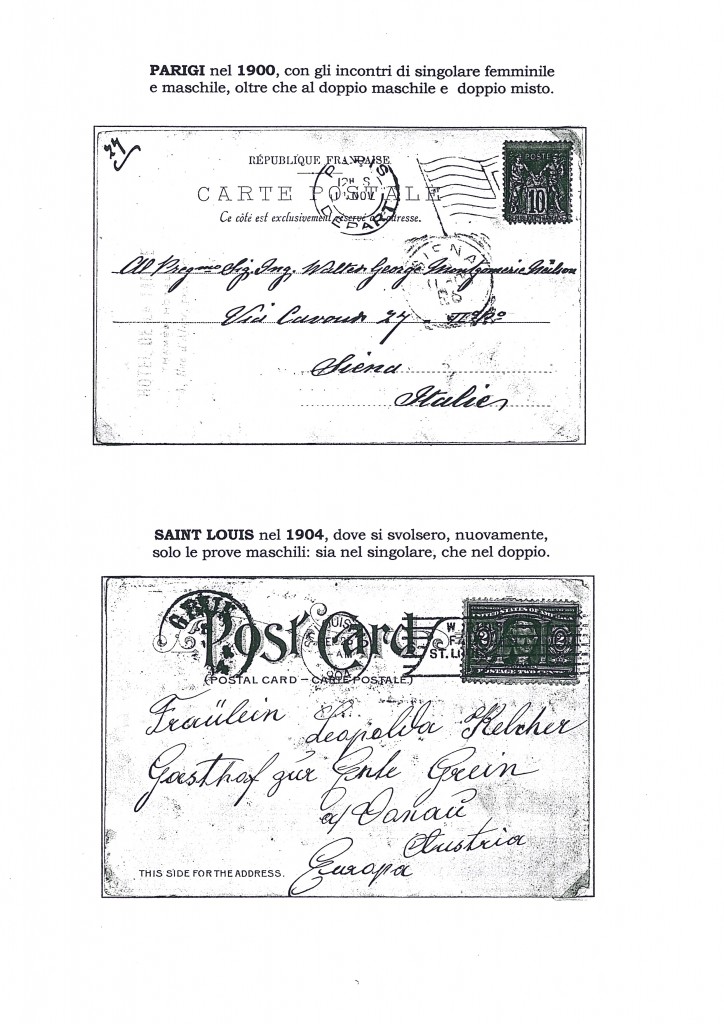 PARIGI nel 1900, con gli incontri di singolare femminile
e maschile, oltre che al doppio maschile e doppio misto.
27
RÉPUBLIQUE FRANÇAISE
CARTE POSTALE
Ce côté est exclusivement réservé à l'adresse.
PARIS
NOV
DEPART
POSTE
10
SIENA
Al Pregmo Sig. Ing. Walter George Montgomerie Neilson
Via Cavour 27
Siena
Italie
HOTEL DE
SAINT LOUIS nel 1904, dove si svolsero, nuovamente,
solo le prove maschili: sia nel singolare, che nel doppio.
GREIN
Post Card
(POSTAL CARD – CARTE POSTALE)
ST. LOUIS
1904
UNITED STATES OF AMERICA
2 2
POSTAGE TWO
ST. LO
Fräulein Leopolda Kelcher
Gasthof zur Ente Grein
a/ Donau
Austria
Europa
THIS SIDE FOR THE ADDRESS.